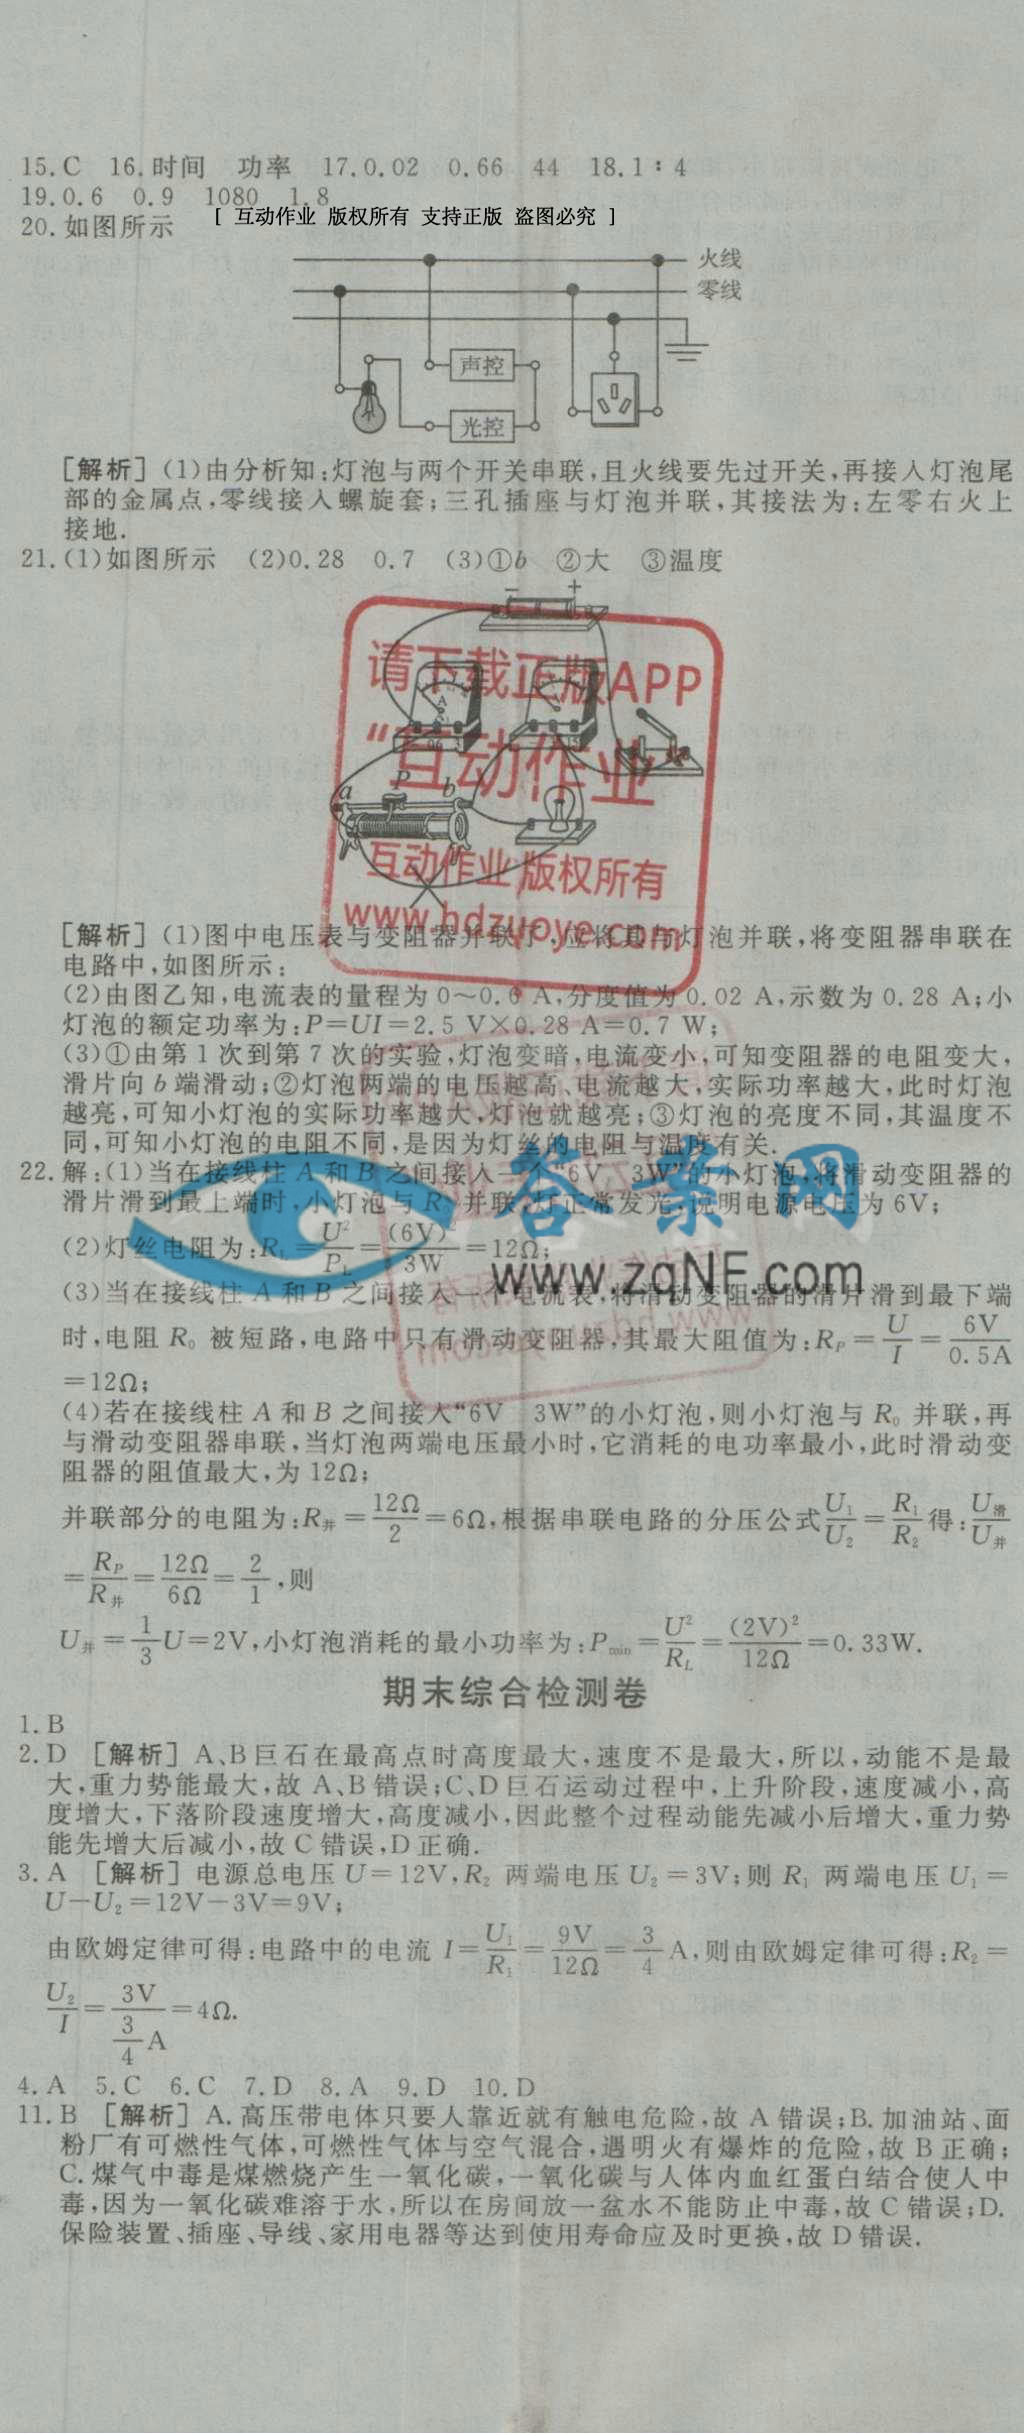 15.C 16.时间 功率 17.0.02 0.66 44 18.1∶4
19.0.6 0.9 1080 1.8
[ 互动作业 版权所有 支持正版 盗图必究 ]
20.如图所示
火线
零线
声控
光控
[解析](1)由分析知:灯泡与两个开关串联,且火线要先过开关,再接入灯泡尾
部的金属点,零线接入螺旋套;三孔插座与灯泡并联,其接法为:左零右火上
接地.
21.(1)如图所示 (2)0.28 0.7 (3)①b ②大 ③温度
− +
请下载正版APP
A V
“互动作业
a P b
互动作业 版权所有
www.hdzuoye.com
[解析](1)图中电压表与变阻器并联了,应将其与灯泡并联,将变阻器串联在
电路中,如图所示;
(2)由图乙知,电流表的量程为0～0.6 A,分度值为0.02 A,示数为0.28 A;小
灯泡的额定功率为:P=UI=2.5 V×0.28 A=0.7 W;
(3)①由第1次到第7次的实验,灯泡变暗,电流变小,可知变阻器的电阻变大,
滑片向b端滑动;②灯泡两端的电压越高、电流越大,实际功率越大,此时灯泡
越亮,可知小灯泡的实际功率越大,灯泡就越亮;③灯泡的亮度不同,其温度不
同,可知小灯泡的电阻不同,是因为灯丝的电阻与温度有关.
22.解:(1)当在接线柱A和B之间接入一个“6V 3W”的小灯泡,将滑动变阻器的
滑片滑到最上端时,小灯泡与R₀并联,灯正常发光,说明电源电压为6V;
答案网
(2)灯丝电阻为:R_L=U²/P_L=(6V)²/3W=12Ω;
www.zqNF.com
(3)当在接线柱A和B之间接入一个电流表,将滑动变阻器的滑片滑到最下端
时,电阻R₀被短路,电路中只有滑动变阻器,其最大阻值为:R_P=U/I=6V/0.5A
=12Ω;
(4)若在接线柱A和B之间接入“6V 3W”的小灯泡,则小灯泡与R₀并联,再
与滑动变阻器串联,当灯泡两端电压最小时,它消耗的电功率最小,此时滑动变
阻器的阻值最大,为12Ω;
并联部分的电阻为:R并=12Ω/2=6Ω,根据串联电路的分压公式U₁/U₂=R₁/R₂得:U滑/U并
=R_P/R并=12Ω/6Ω=2/1,则
U并=1/3U=2V,小灯泡消耗的最小功率为:P_min=U²/R_L=(2V)²/12Ω=0.33W.
期末综合检测卷
1.B
2.D [解析]A、B巨石在最高点时高度最大,速度不是最大,所以,动能不是最
大,重力势能最大,故A、B错误;C、D巨石运动过程中,上升阶段,速度减小,高
度增大,下落阶段速度增大,高度减小,因此整个过程动能先减小后增大,重力势
能先增大后减小,故C错误,D正确.
3.A [解析]电源总电压U=12V,R₂两端电压U₂=3V;则R₁两端电压U₁=
U−U₂=12V−3V=9V;
由欧姆定律可得:电路中的电流I=U₁/R₁=9V/12Ω=3/4A,则由欧姆定律可得:R₂=
U₂/I=3V/(3/4A)=4Ω.
4.A 5.C 6.C 7.D 8.A 9.D 10.D
11.B [解析]A.高压带电体只要人靠近就有触电危险,故A错误;B.加油站、面
粉厂有可燃性气体,可燃性气体与空气混合,遇明火有爆炸的危险,故B正确;
C.煤气中毒是煤燃烧产生一氧化碳,一氧化碳与人体内血红蛋白结合使人中
毒,因为一氧化碳难溶于水,所以在房间放一盆水不能防止中毒,故C错误;D.
保险装置、插座、导线、家用电器等达到使用寿命应及时更换,故D错误.